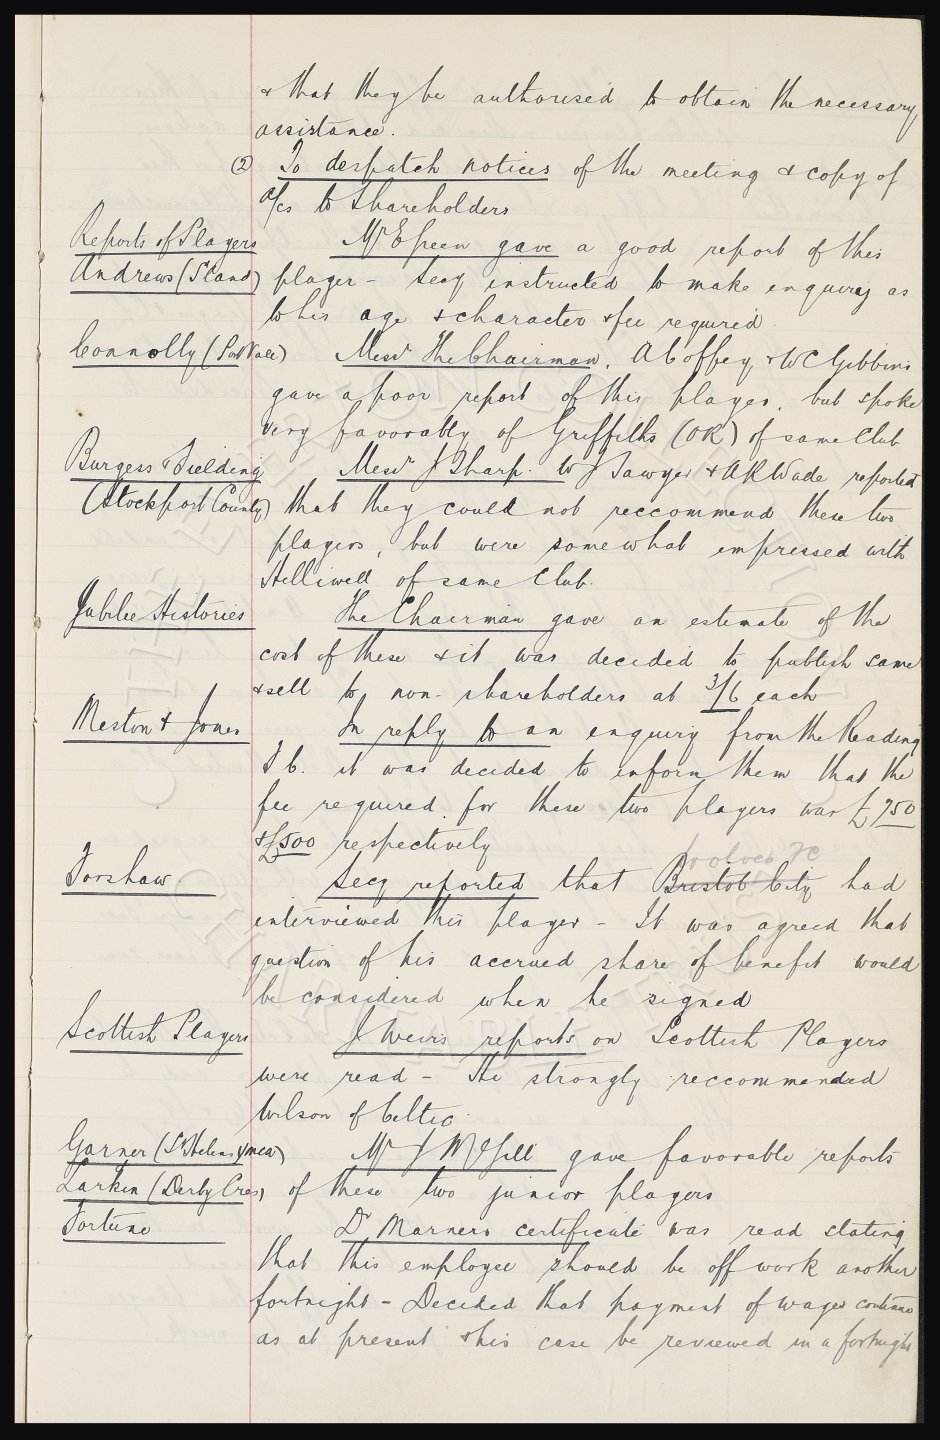 & that they be authorised to obtain the necessary
assistance.
② To despatch notices of the meeting & copy of
a/cs to Shareholders
Reports of Players Mr E Green gave a good report of this
Andrews (Stand) player - Secy instructed to make enquiry as
to his age & character & fee required.
Connolly (Port Vale) Messrs The Chairman, A Coffey & W C Gibbins
gave a poor report of this player, but spoke
very favorably of Griffiths (OR) of same Club
Burgess & Fielding Messrs J Sharp. W J Sawyer & A R Wade reported
(Stockport County) that they could not reccommend these two
players, but were somewhat impressed with
Helliwell of same Club.
Jubilee Histories The Chairman gave an estimate of the
cost of these & it was decided to publish same
& sell to non-shareholders at 3/6 each
Meston & Jones In reply to an enquiry from the Reading
F C. it was decided to inform them that the
fee required for these two players was £750
& £500 respectively
Wolves FC
Forshaw Secy reported that Bristol City had
interviewed this player - It was agreed that
question of his accrued share of benefit would
be considered when he signed
Scottish Players J Weirs reports on Scottish Players
were read - He strongly reccommended
Wilson of Celtic.
Garner (St Helens Ymca) Mr J McGill gave favorable reports
Larkin (Derby Cres) of these two junior players
Fortune Dr Marners certificate was read stating
that this employee should be off work another
fortnight - Decided that payment of wages continue
as at present & his case be reviewed in a fortnight